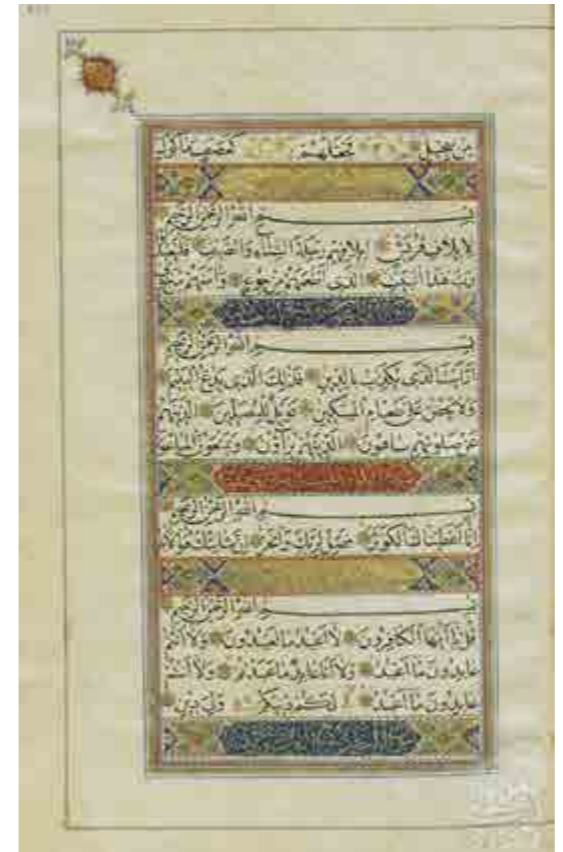 من سجيل فجعلهم كعصف مأكول
بسم الله الرحمن الرحيم
لإيلاف قريش إيلافهم رحلة الشتاء والصيف فليعبدوا
رب هذا البيت الذى أطعمهم من جوع وآمنهم من خوف
بسم الله الرحمن الرحيم
أرأيت الذى يكذب بالدين فذلك الذى يدع اليتيم
ولا يحض على طعام المسكين فويل للمصلين الذين هم
عن صلوتهم ساهون الذين هم يرآؤن ويمنعون الماعون
بسم الله الرحمن الرحيم
إنا أعطيناك الكوثر فصل لربك وانحر إن شانئك هو الأبتر
بسم الله الرحمن الرحيم
قل يا أيها الكافرون لا أعبد ما تعبدون ولا أنتم
عابدون ما أعبد ولا أنا عابد ما عبدتم ولا أنتم
عابدون ما أعبد لكم دينكم ولى دين